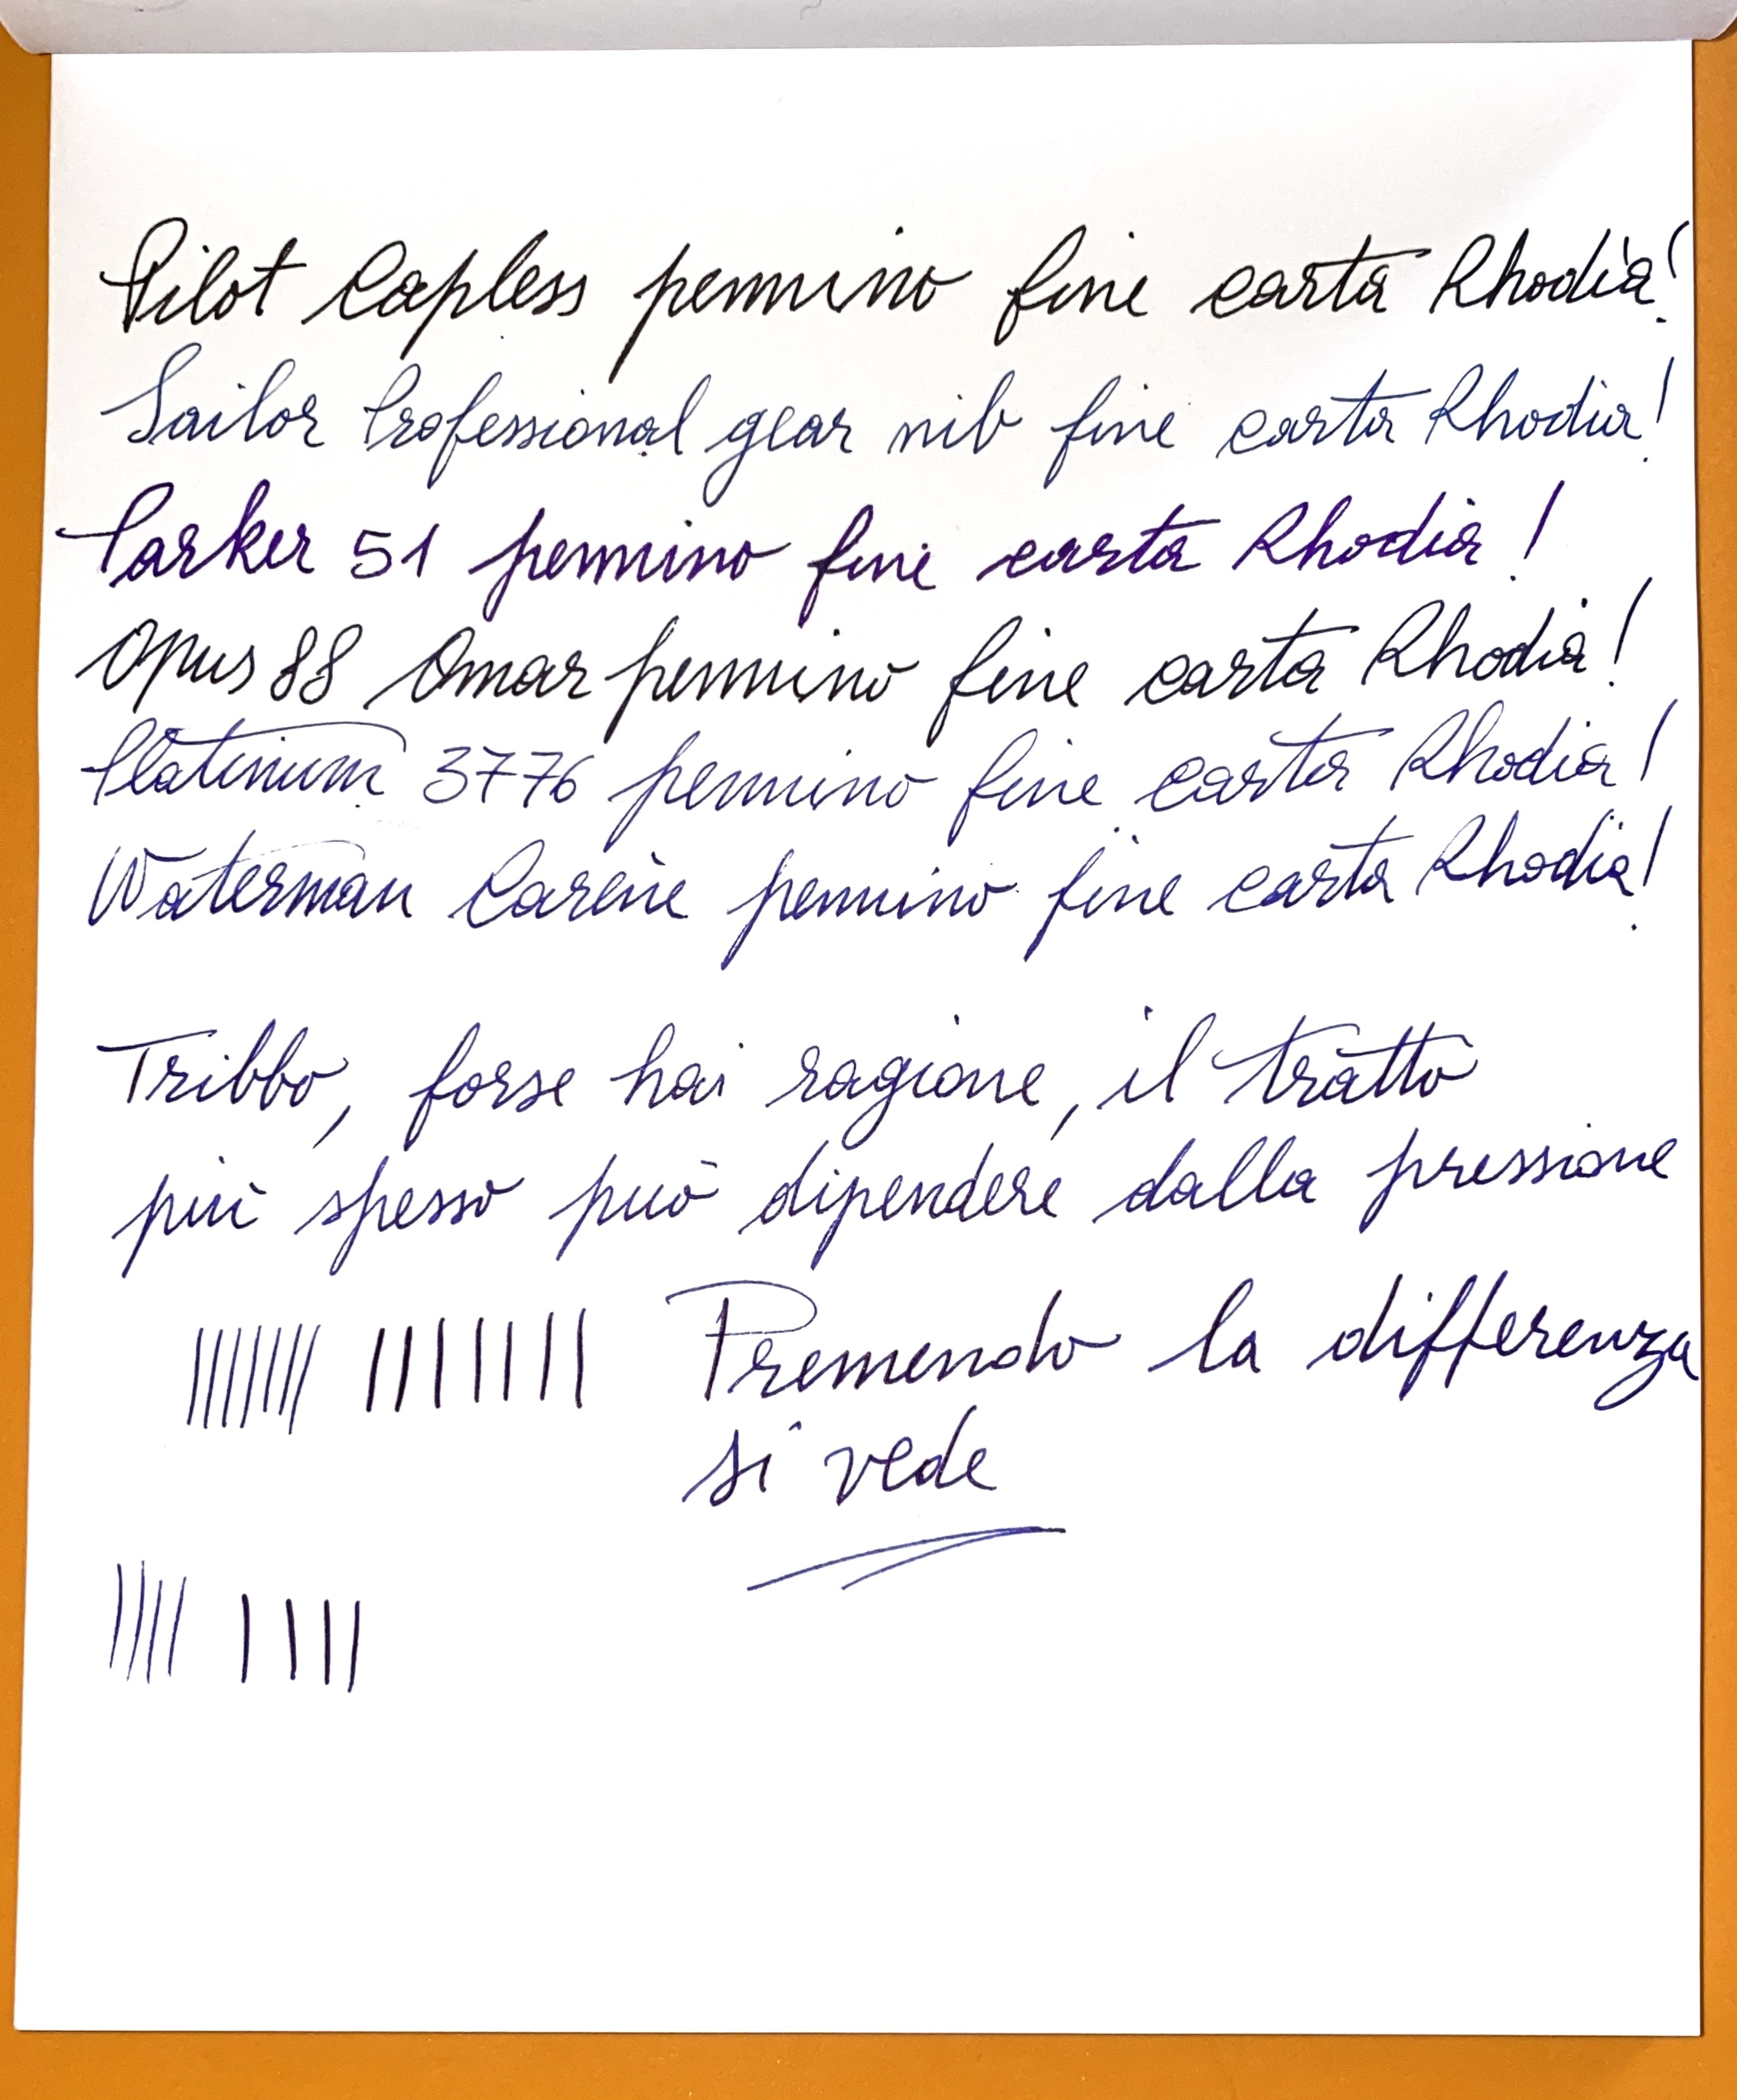 Pilot Capless pennino fine carta Rhodia!
Sailor Professional gear nib fine carta Rhodia!
Parker 51 pennino fine carta Rhodia!
Opus 88 Omar pennino fine carta Rhodia!
Platinum 3776 pennino fine carta Rhodia!
Waterman Carène pennino fine carta Rhodia!
Tribbo, forse hai ragione, il tratto
più spesso può dipendere dalla pressione
Premendo la differenza
si vede